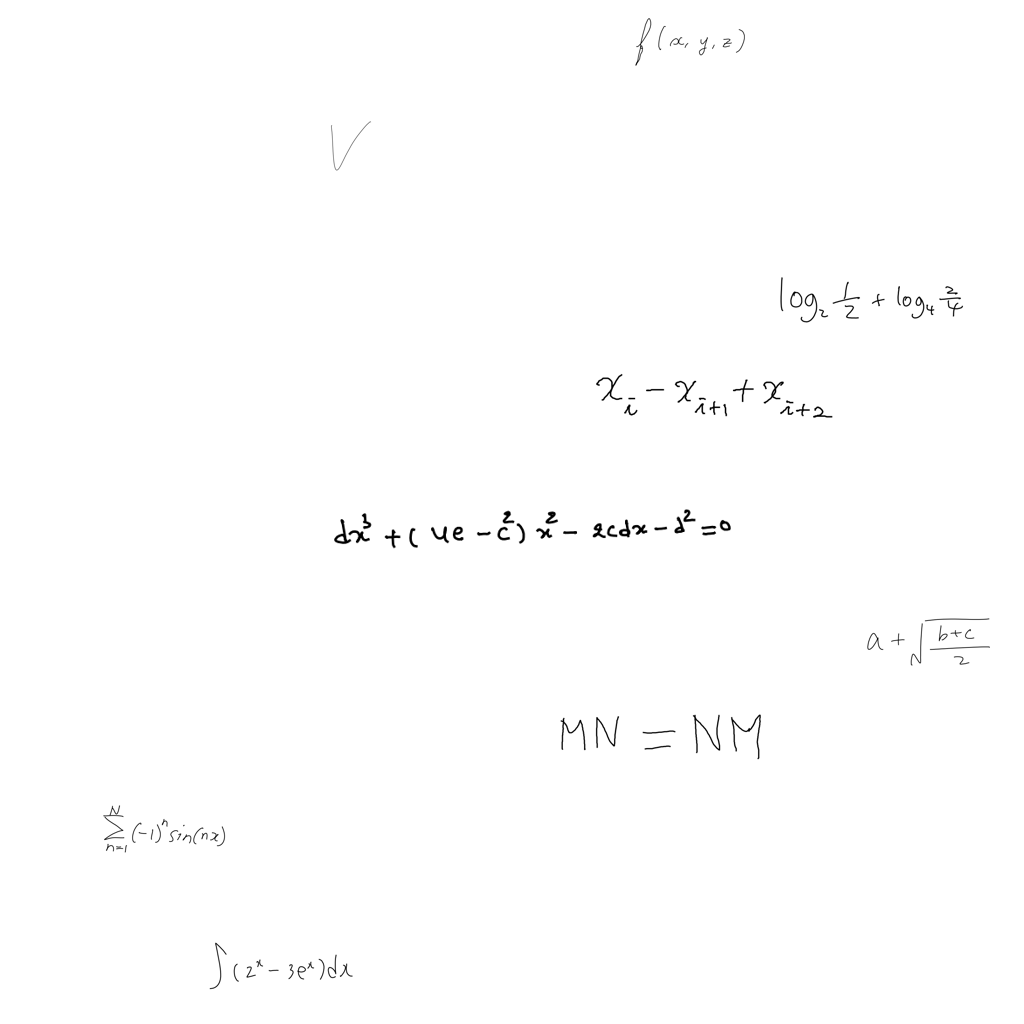 f(x, y, z)
V
log₂ 1/2 + log₄ 2/4
xᵢ − xᵢ₊₁ + xᵢ₊₂
dx³ + (4e − c²) x² − 2cdx − d² = 0
a + √((b+c)/2)
MN = NM
∑_{n=1}^{N} (-1)ⁿ sin(nx)
∫(2ˣ − 3eˣ)dx